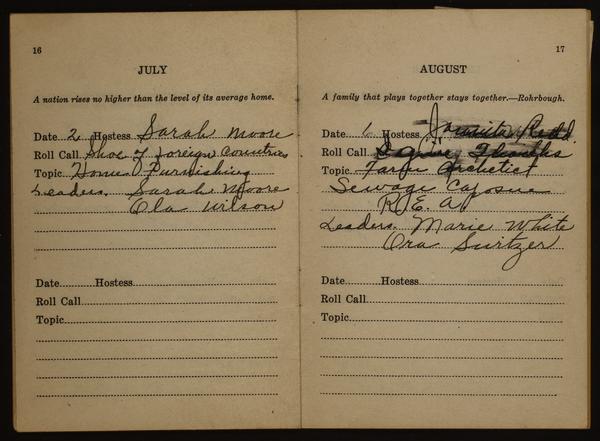 16
JULY
A nation rises no higher than the level of its average home.
Date 2 Hostess Sarah Moore
Roll Call Shoe of foreign Countries
Topic Home Furnishing
Leaders. Sarah Moore
Ola Wilson
Date Hostess
Roll Call
Topic
17
AUGUST
A family that plays together stays together.—Rohrbough.
Date 1 Hostess Juanita Redd.
Roll Call
Topic Farm Archetict
Sewage
R. E. A.
Leaders. Marie White
Ora Switzer
Date Hostess
Roll Call
Topic